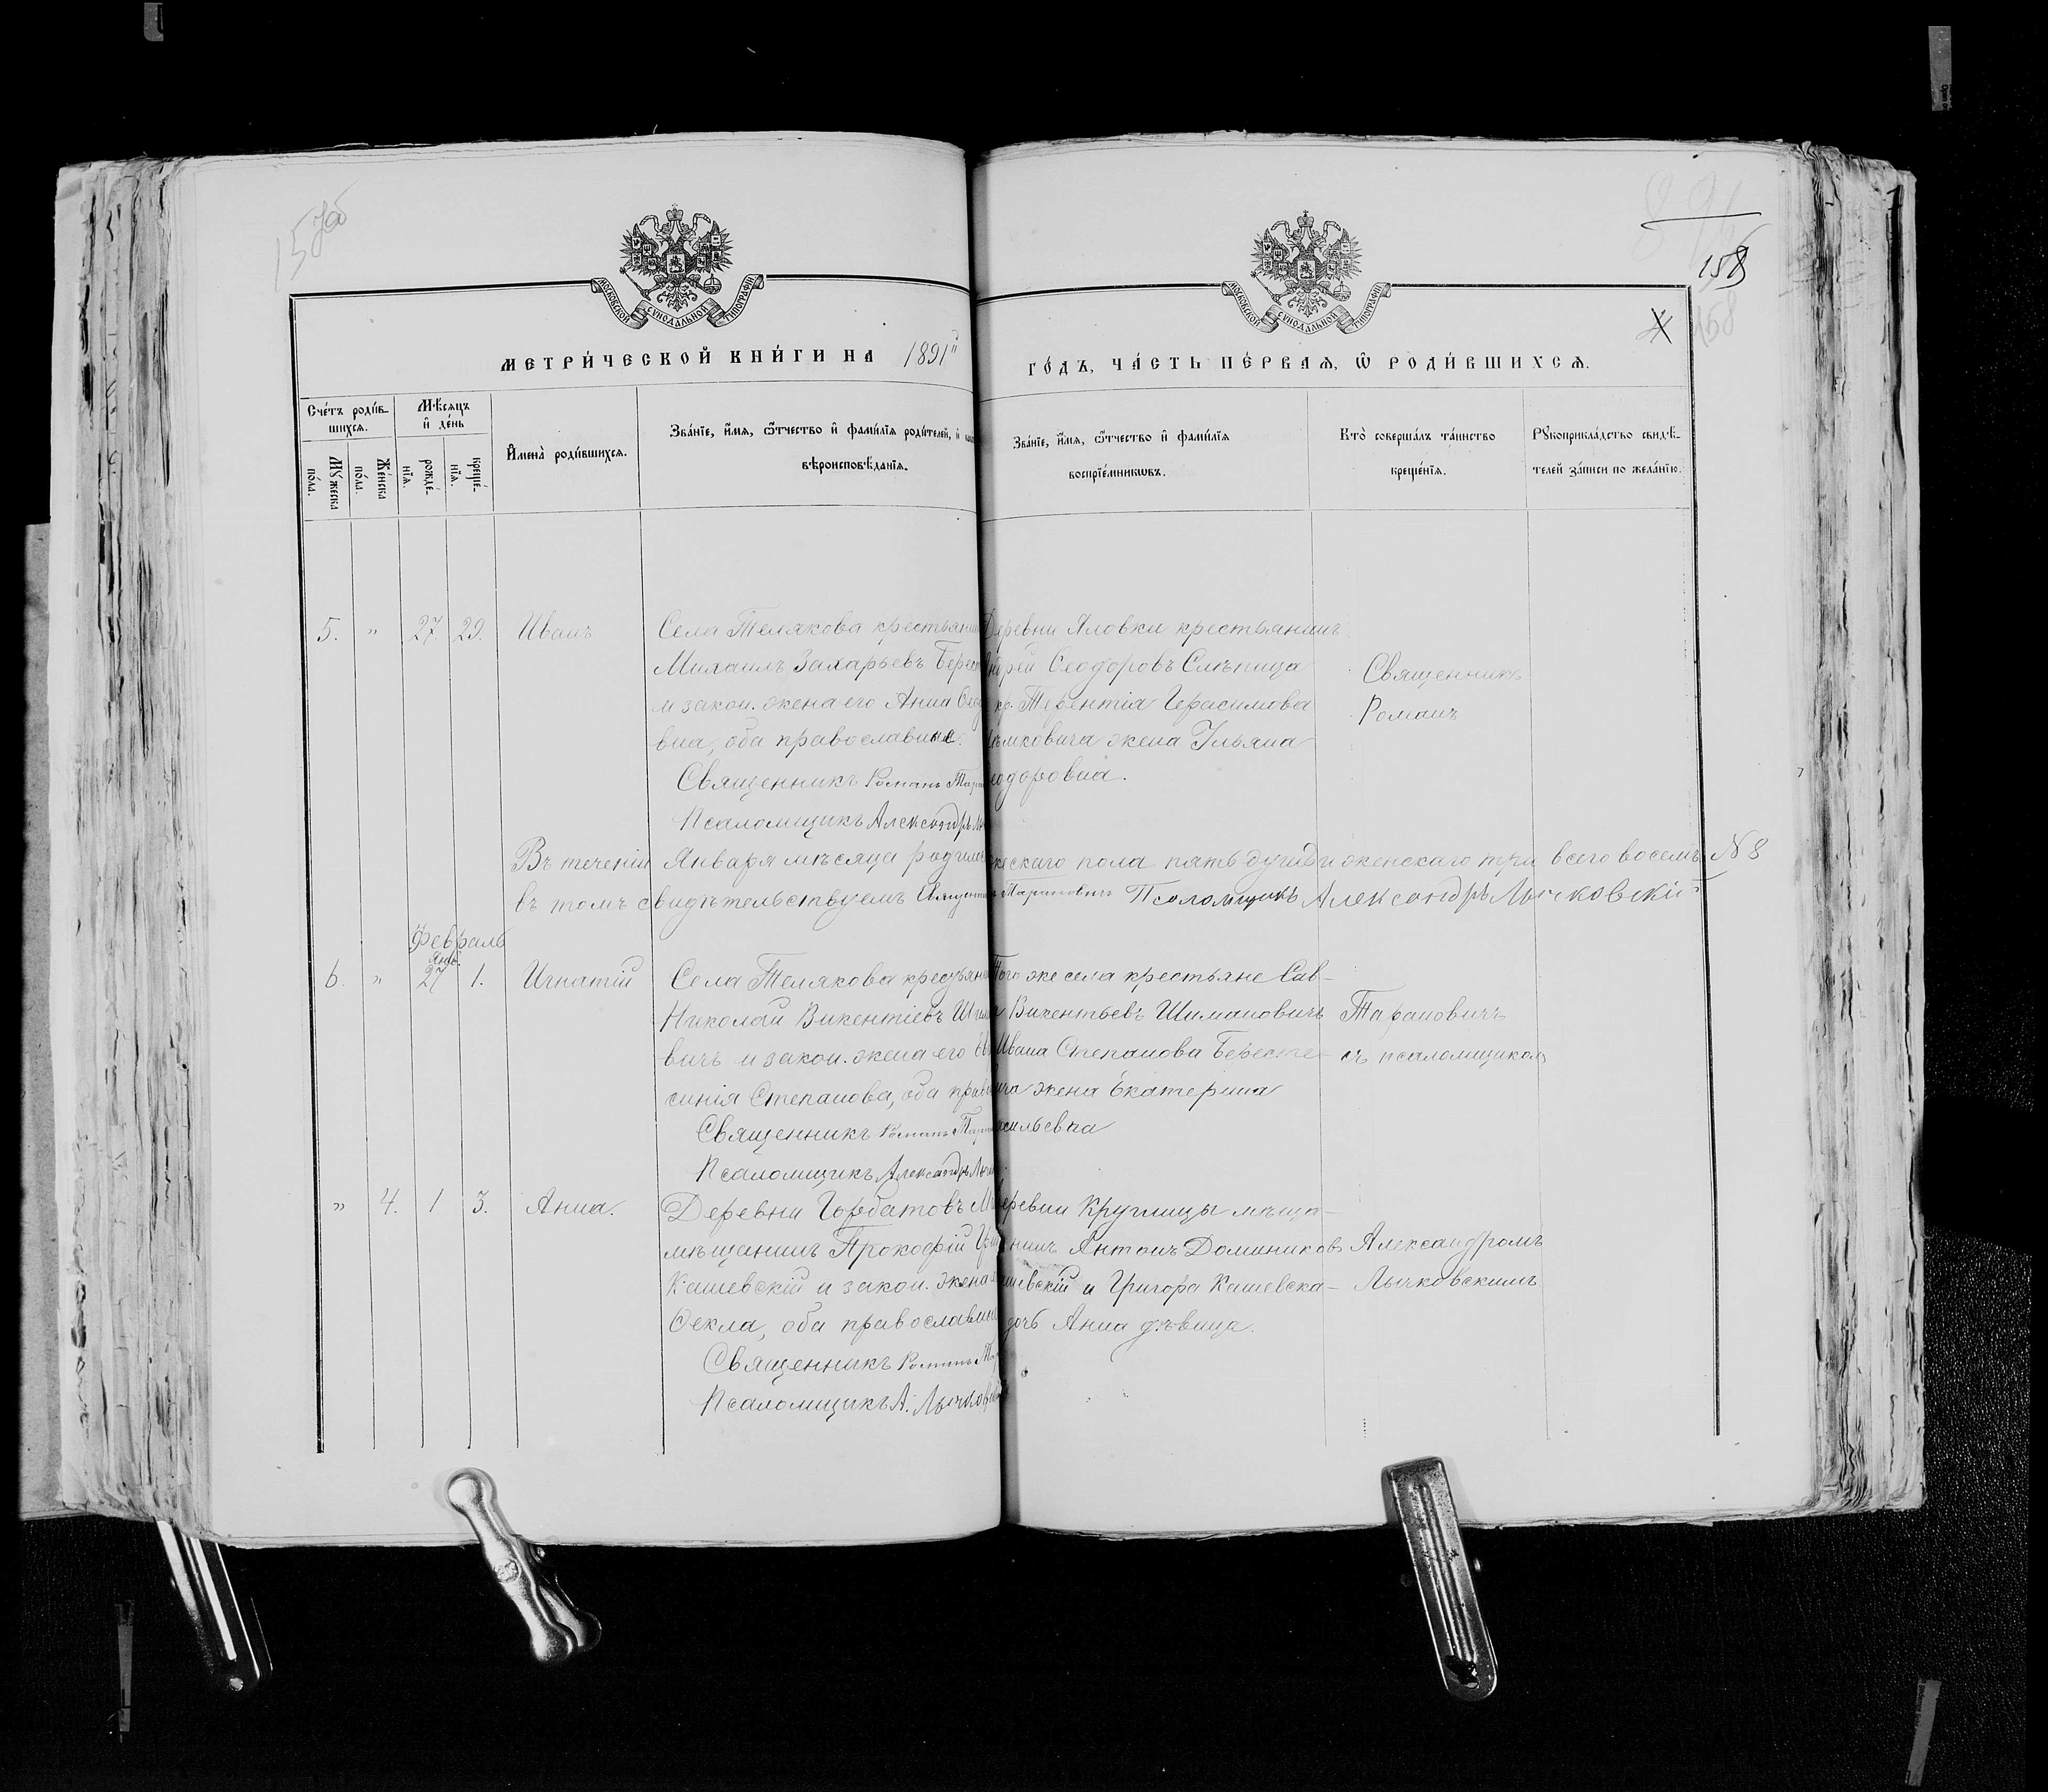 157об
158
158
МОСКОВСКОЙ СѴНОДАЛЬНОЙ ТИПОГРАФІИ
МОСКОВСКОЙ СѴНОДАЛЬНОЙ ТИПОГРАФІИ
МЕТРИ́ЧЕСКОЙ КНИ́ГИ НА 1891й ГО́ДЪ, ЧА́СТЬ ПЕ́РВАЯ, Ѡ РОДИ́ВШИХСЯ.
Сче́тъ роди́в-
шихся.
Мѣ́сяцъ
и҆ де́нь
Му́жеска
по́ла.
Же́нска
по́ла.
рожде́-
нїя.
креще́-
нїя.
И҆мена̀ роди́вшихся.
Зва́нїе, и҆́мя, ѻ҆́тчество и҆ фами́лїя роди́телей, и҆
вѣроисповѣ́данїя.
Зва́нїе, и҆́мя, ѻ҆́тчество и҆ фами́лїя
воспрїе́мникѡвъ.
Кто̀ соверша́лъ та́инство
креще́нїя.
Рукоприкла́дство свидѣ́-
телей за́писи по жела́нїю.
5. " 27. 29. Иванъ
Села Телякова крестьянин
Михаилъ Захарьевъ Берест
и закон. жена его Анна Ѳеод
вна, оба православные.
Священникъ Романъ Тар
Псаломщикъ Александръ
Деревни Яловки крестьянинъ
Андрей Ѳеодоровъ Слѣпица
кр. Терентія Герасимова
жена Ульяна
еодоровна.
Священникъ
Романъ
Въ теченіи Января мѣсяца родил жескаго пола пять душъ и женскаго три всего восемь №8
въ томъ свидѣтельствуемъ Священникъ Тарановичъ Псаломщикъ Александръ Лычковскій
Февраль
6. " Янв. 27 1. Игнатій
Села Телякова крестьяни
Николай Викентіевъ Шима
вичъ и закон. жена его Ев
синія Степанова, оба прав
Священникъ Романъ Тар
Псаломщикъ Александръ Лыч
Того же села крестьяне Сав-
Викентьевъ Шимановичъ
Ивана Степанова Бересте-
жена Екатерина
асильевна
Тарановичъ
съ псаломщикомъ
" 4. 1 3. Анна.
Деревни Горбатовъ
мѣщанинъ Прокофій Гри
Кашевскій и закон. жена
Ѳекла, оба православны
Священникъ Романъ Тар
Псаломщикъ А. Лычков
Деревни Круглицы мѣща-
нинъ Антонъ Домиников
шевскій и Григора Кашевска-
дочь Анна дѣвица.
Александромъ
Лычковскимъ